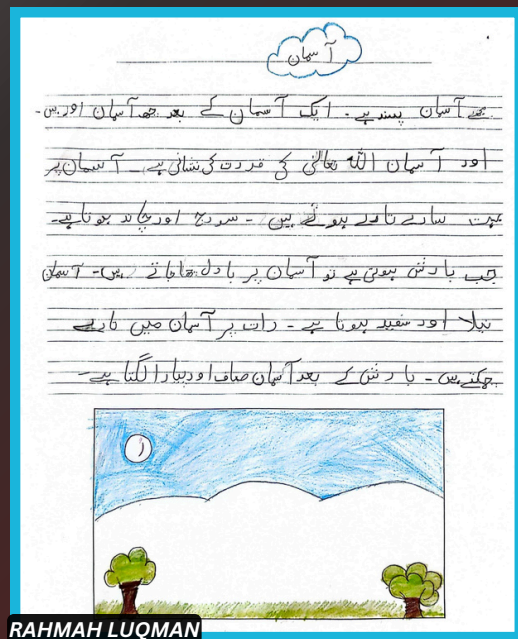 آسمان
مجھے آسمان پسند ہے۔ ایک آسمان کے بعد چھ آسمان اور ہیں۔
اور آسمان اللہ تعالیٰ کی قدرت کی نشانی ہے۔ آسمان پر
بہت سارے تارے ہوتے ہیں۔ سورج اور چاند ہوتا ہے۔
جب بارش ہوتی ہے تو آسمان پر بادل چھا جاتے ہیں۔ آسمان
نیلا اور سفید ہوتا ہے۔ رات پر آسمان میں تارے
چمکتے ہیں۔ بارش کے بعد آسمان صاف اور پیارا لگتا ہے۔
RAHMAH LUQMAN